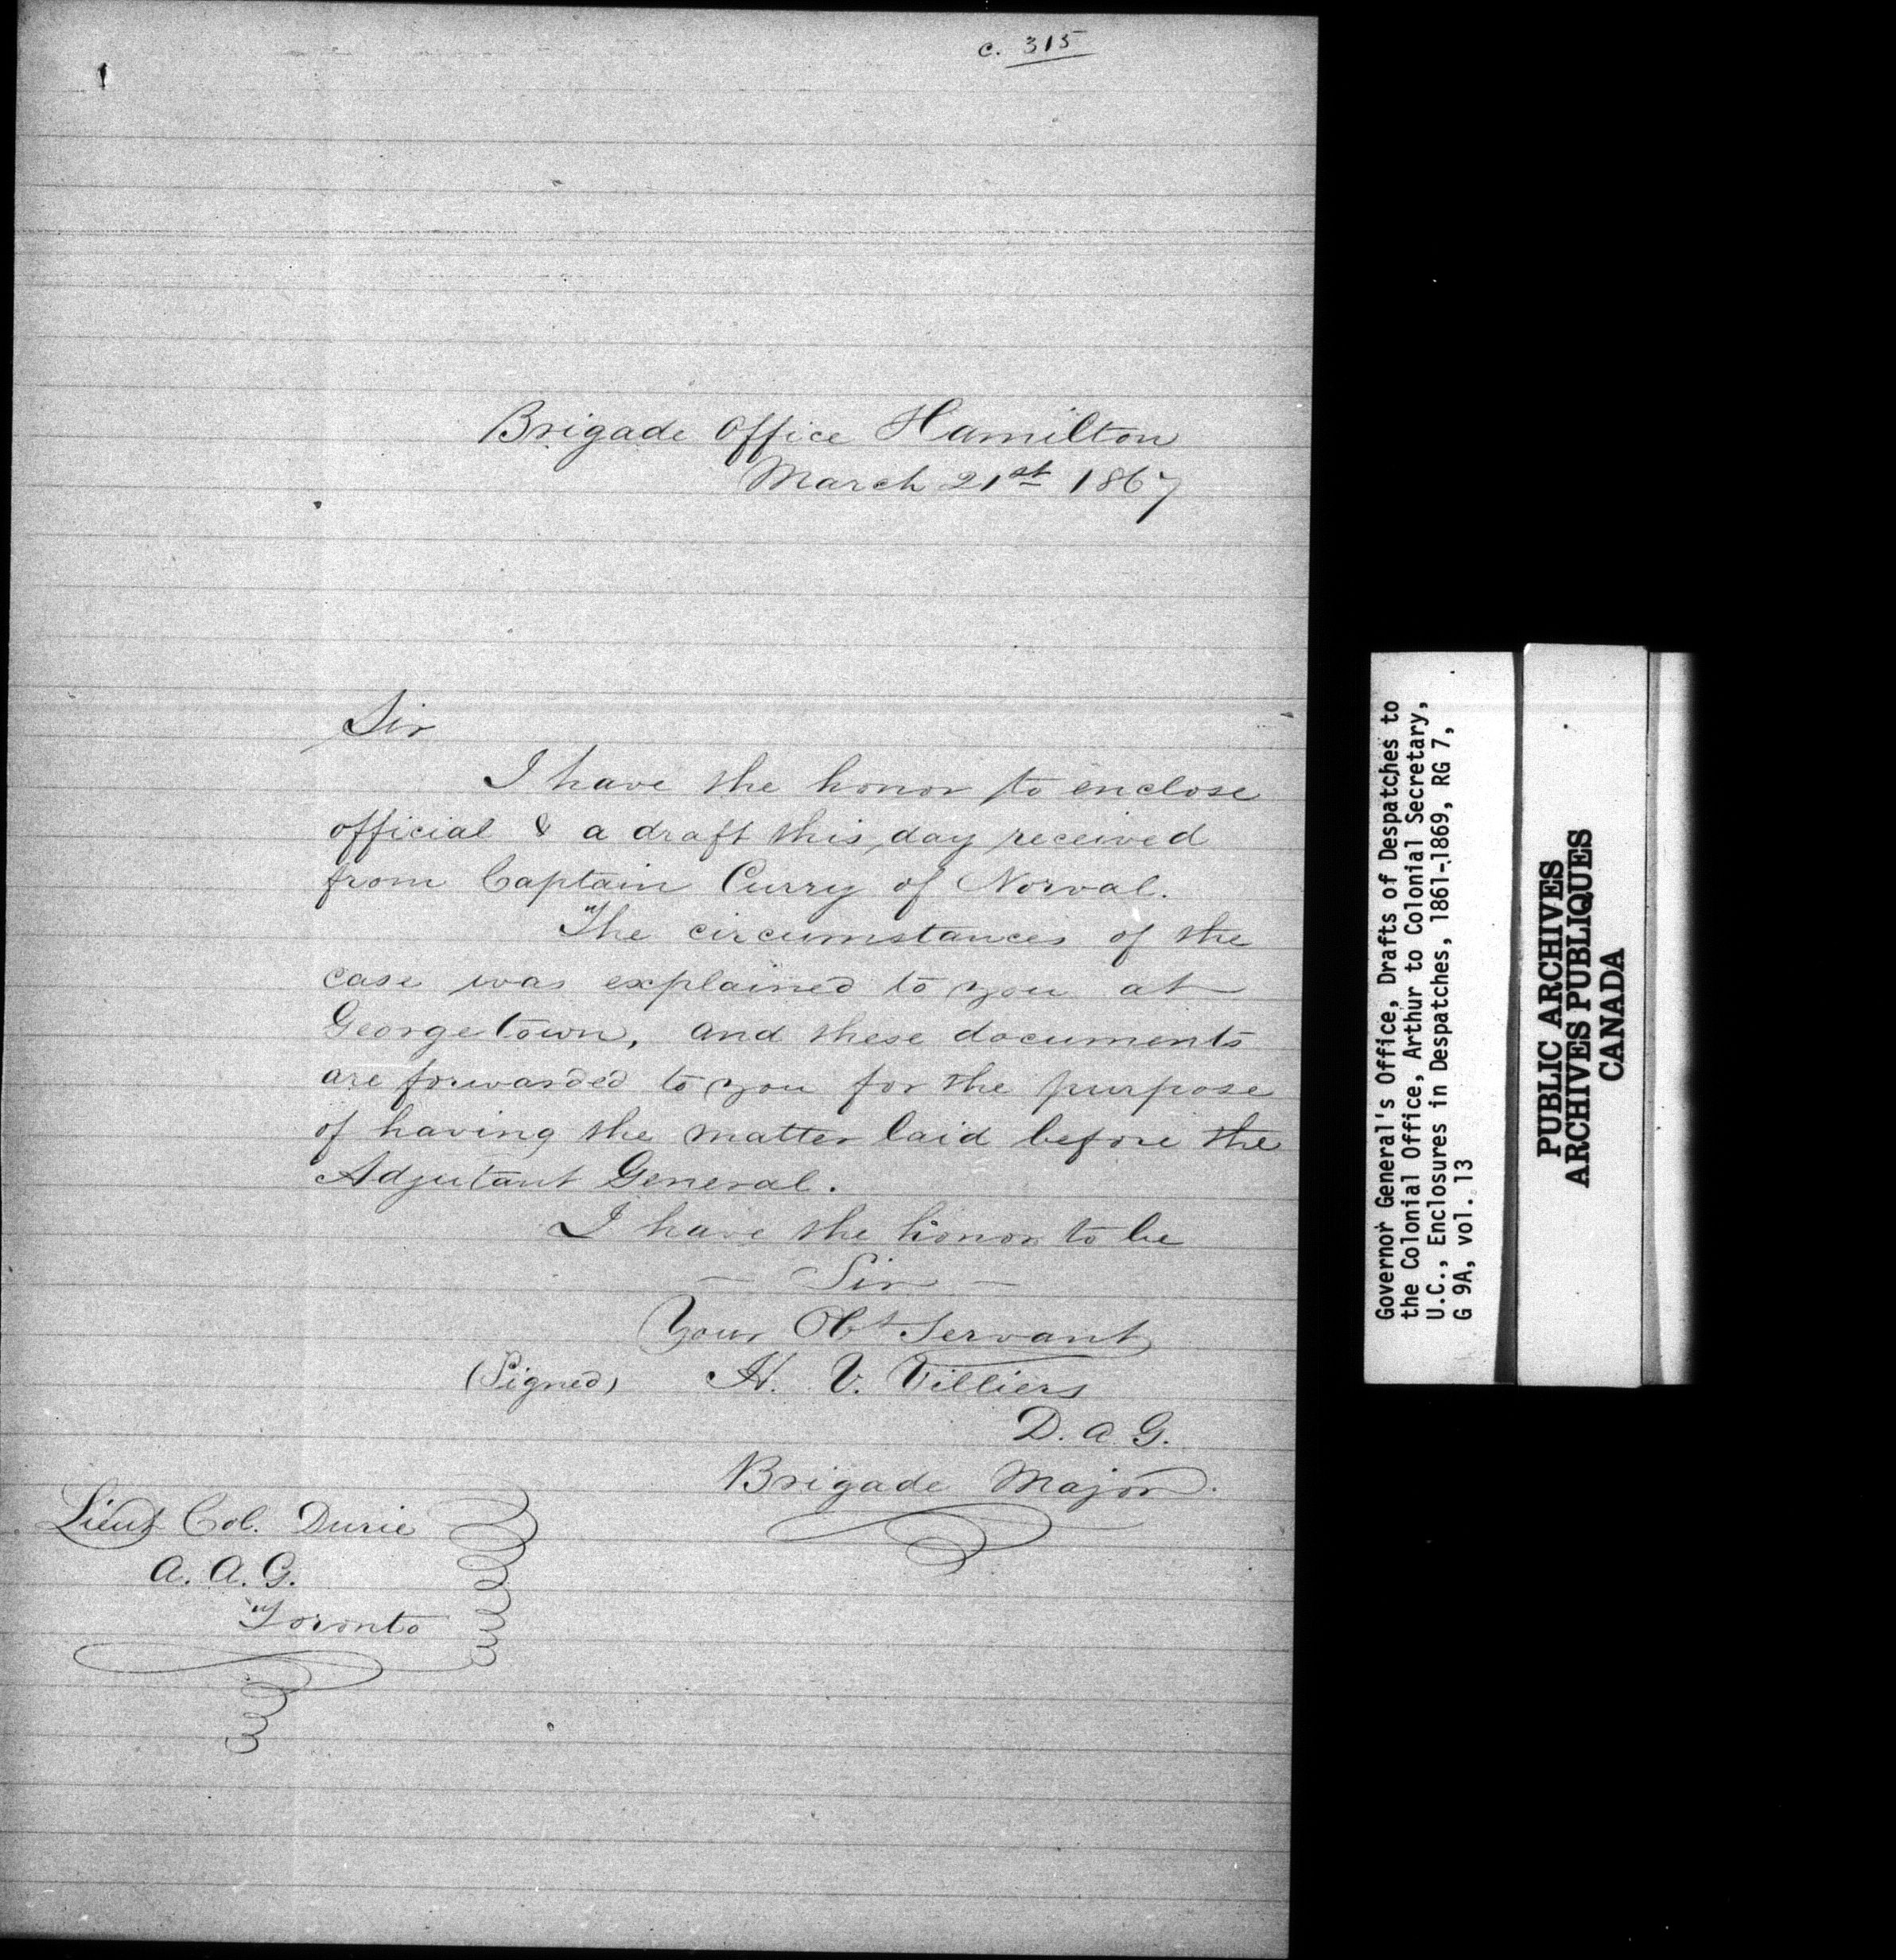 c. 315
Brigade Office Hamilton
March 21st 1867
Sir
I have the honor to enclose
official & a draft this day received
from Captain Curry of Norval.
The circumstances of the
case was explained to you at
Georgetown, and these documents
are forwarded to you for the purpose
of having the matter laid before the
Adjutant General.
I have the honor to be
— Sir —
Your Obt Servant
(Signed) H. V. Villiers
D. A G.
Brigade Major.
Lieut Col. Durie
A. A. G.
Toronto
Governor General's Office, Drafts of Despatches to
the Colonial Office, Arthur to Colonial Secretary,
U.C., Enclosures in Despatches, 1861-1869, RG 7,
G 9A, vol. 13
PUBLIC ARCHIVES
ARCHIVES PUBLIQUES
CANADA